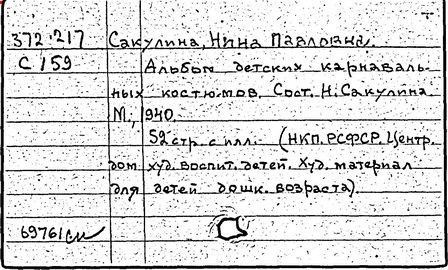 372.217 Сакулина, Нина Павловна.
С 159 Альбом детских карнаваль-
ных костюмов. Сост. Н. Сакулина
М., 1940.
52 стр. с илл. (НКП. РСФСР. Центр.
дом худ. воспит. детей. Худ. материал
для детей дошк. возраста)
69761